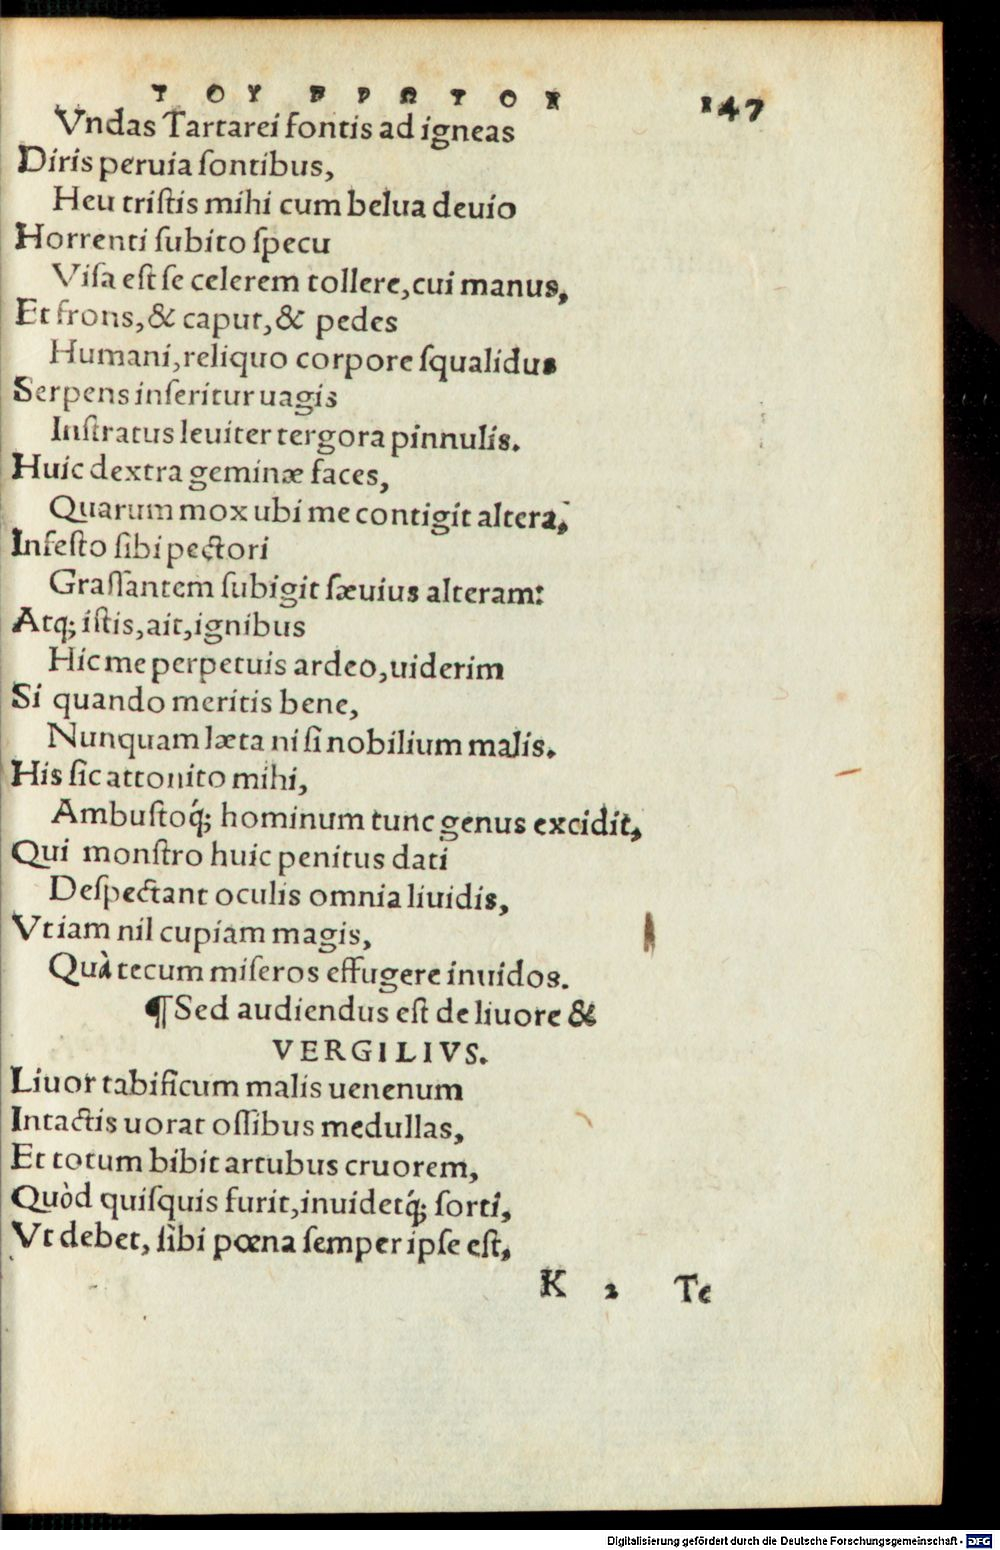 ΤΟΥ ΕΡΩΤΟΣ 147
Vndas Tartarei fontis ad igneas
Diris peruia ſontibus,
Heu triſtis mihi cum belua deuio
Horrenti ſubito ſpecu
Viſa eſt ſe celerem tollere, cui manus,
Et frons, & caput, & pedes
Humani, reliquo corpore ſqualidus
Serpens inſeritur uagis
Inſtratus leuiter tergora pinnulis.
Huic dextra geminæ faces,
Quarum mox ubi me contigit altera,
Infeſto ſibi pectori
Graſſantem ſubigit ſæuius alteram:
Atq; iſtis, ait, ignibus
Hic me perpetuis ardeo, uiderim
Si quando meritis bene,
Nunquam læta niſi nobilium malis.
His ſic attonito mihi,
Ambuſtoq́; hominum tunc genus excidit,
Qui monſtro huic penitus dati
Deſpectant oculis omnia liuidis,
Vt iam nil cupiam magis,
Quà tecum miſeros effugere inuidos.
¶ Sed audiendus eſt de liuore &
VERGILIVS.
Liuor tabificum malis uenenum
Intactis uorat oſſibus medullas,
Et totum bibit artubus cruorem,
Quòd quiſquis furit, inuidetq́; ſorti,
Vt debet, ſibi pœna ſemper ipſe eſt,
K 2 Te
Digitalisierung gefördert durch die Deutsche Forschungsgemeinschaft - DFG